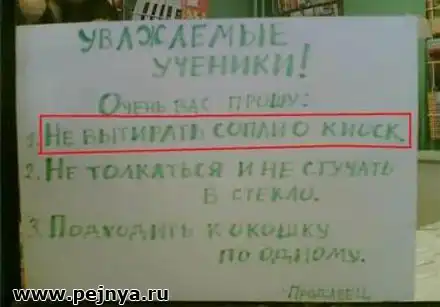 УВАЖАЕМЫЕ
УЧЕНИКИ!
ОЧЕНЬ ВАС ПРОШУ:
1. НЕ ВЫТИРАТЬ СОПЛИ О КИОСК.
2. НЕ ТОЛКАТЬСЯ И НЕ СТУЧАТЬ
В СТЕКЛО.
3. ПОДХОДИТЬ К ОКОШКУ
ПО ОДНОМУ.
ПРОДАВЕЦ
www.pejnya.ru